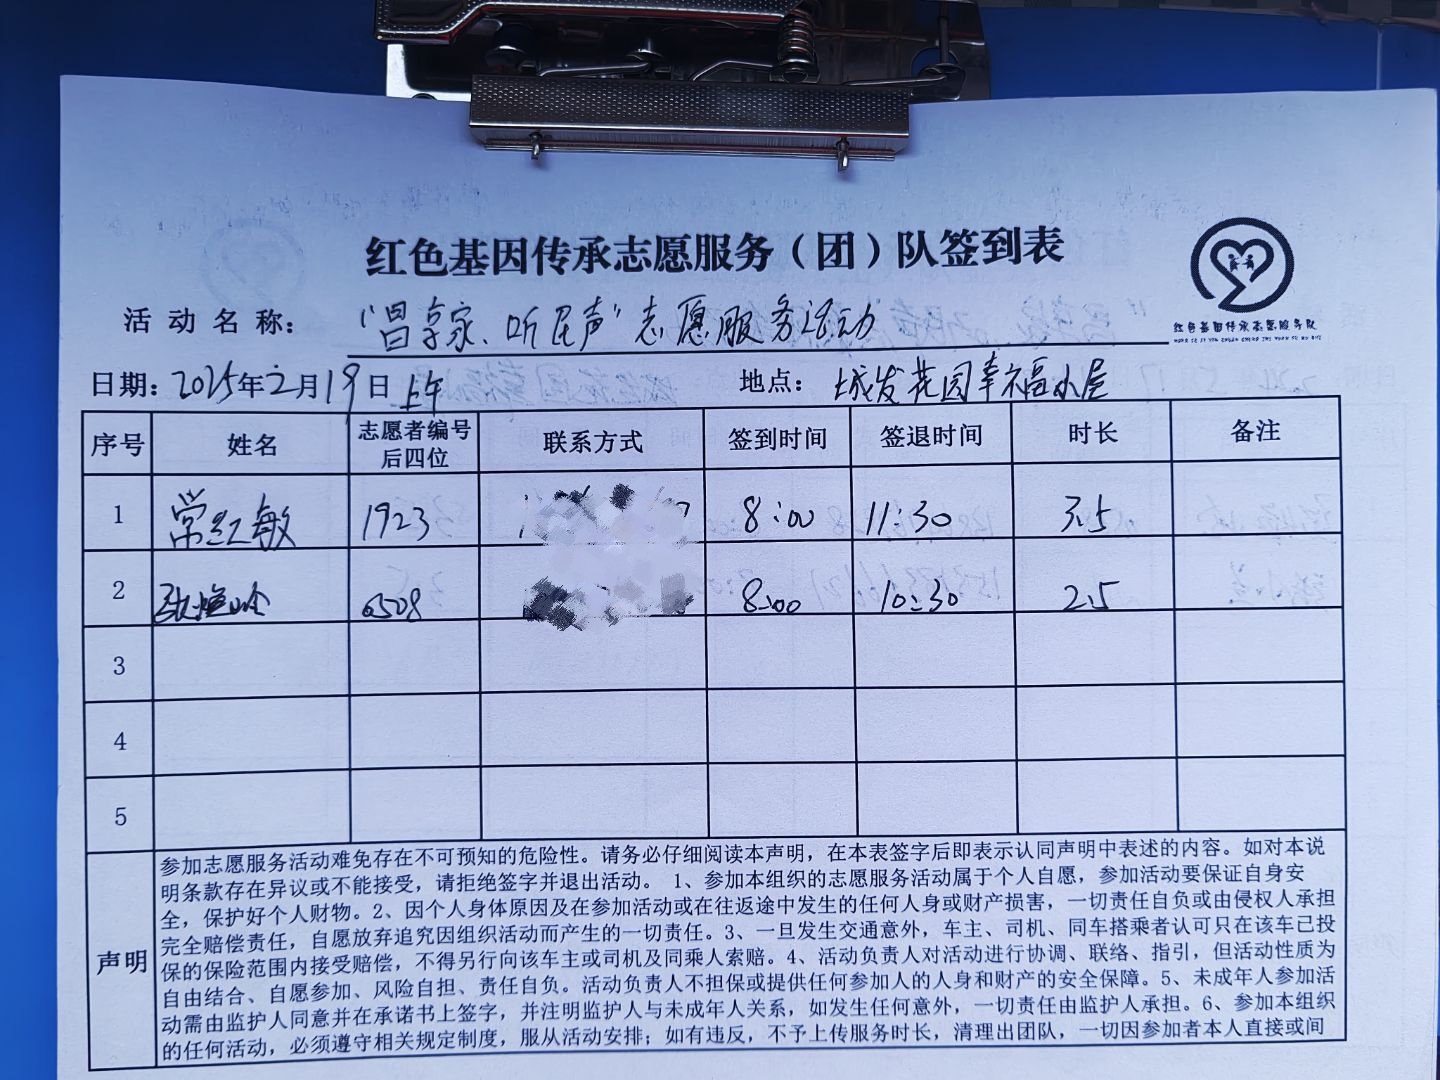 红色基因传承志愿服务（团）队签到表
红色基因传承志愿服务队
活动名称： “昌享家、听民声”志愿服务活动
日期：2025年2月19日上午 地点： 城发花园幸福小屋
序号 姓名 志愿者编号后四位 联系方式 签到时间 签退时间 时长 备注
1 常红敏 1923 8:00 11:30 3.5
2 0508 8:00 10:30 2.5
3
4
5
声明
参加志愿服务活动难免存在不可预知的危险性。请务必仔细阅读本声明，在本表签字后即表示认同声明中表述的内容。如对本说
明条款存在异议或不能接受，请拒绝签字并退出活动。 1、参加本组织的志愿服务活动属于个人自愿，参加活动要保证自身安
全，保护好个人财物。2、因个人身体原因及在参加活动或在往返途中发生的任何人身或财产损害，一切责任自负或由侵权人承担
完全赔偿责任，自愿放弃追究因组织活动而产生的一切责任。3、一旦发生交通意外，车主、司机、同车搭乘者认可只在该车已投
保的保险范围内接受赔偿，不得另行向该车主或司机及同乘人索赔。4、活动负责人对活动进行协调、联络、指引，但活动性质为
自由结合、自愿参加、风险自担、责任自负。活动负责人不担保或提供任何参加人的人身和财产的安全保障。5、未成年人参加活
动需由监护人同意并在承诺书上签字，并注明监护人与未成年人关系，如发生任何意外，一切责任由监护人承担。6、参加本组织
的任何活动，必须遵守相关规定制度，服从活动安排；如有违反，不予上传服务时长，清理出团队，一切因参加者本人直接或间